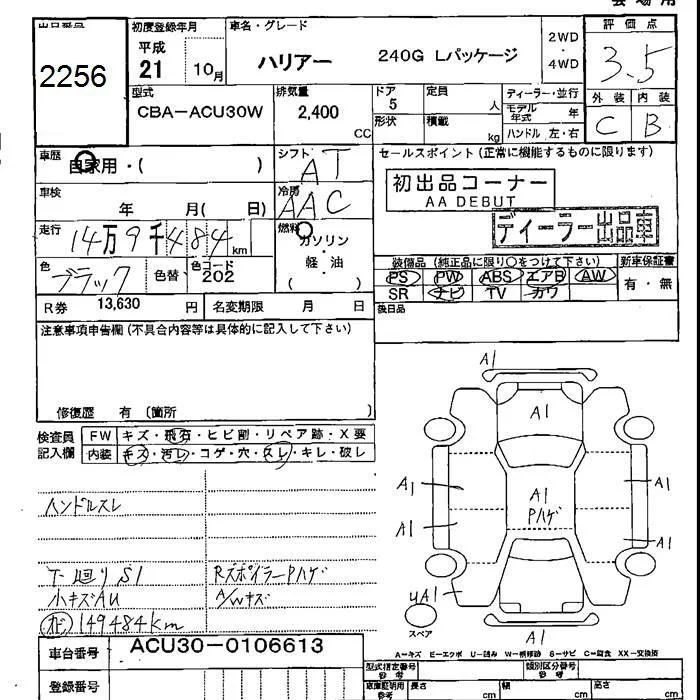 出品番号
2256
初度登録年月
平成
21 10月
車名・グレード
ハリアー 240G Lパッケージ
2WD
・
4WD
評価点
3.5
外装 内装
C B
型式
CBA-ACU30W
排気量
2,400
CC
ドア
5
定員
人
形状
積載
kg
ディーラー・並行
モデル年式 年
ハンドル 左・右
車歴
自家用・( )
シフト
AT
車検
年 月( 日)
冷房
AAC
走行
14万9千484km
燃料
ガソリン
軽・油
( )
色
ブラック
色替
色コード
202
R券 13,630 円
名変期限 月 日
セールスポイント(正常に機能するものに限ります)
初出品コーナー
AA DEBUT
ディーラー出品車
装備品(純正品に限り○をつけて下さい)
新車保証書
PS PW ABS エアB AW
SR ナビ TV カワ
有・無
後日品
注意事項申告欄(不具合内容等は具体的に記入して下さい)
修復歴 有 〔箇所 〕
検査員
記入欄
FW キズ・飛石・ヒビ割・リペア跡・X要
内装 キズ・汚レ・コゲ・穴・スレ・キレ・破レ
ハンドルスレ
下廻りS1
Rスポイラー Pハゲ
小キズAU
A/Wキズ
149484km
A1
A1
A1
A1
A1
A1
Pハゲ
A1
A1
スペア
A1
A-キズ E-エクボ U-凹み W-板修跡 S-サビ C-腐食 XX-交換済
車台番号 ACU30-0106613
登録番号
型式指定番号
参考
類別区分番号
参考
車庫証明用
参考
長さ cm
幅 cm
高さ cm